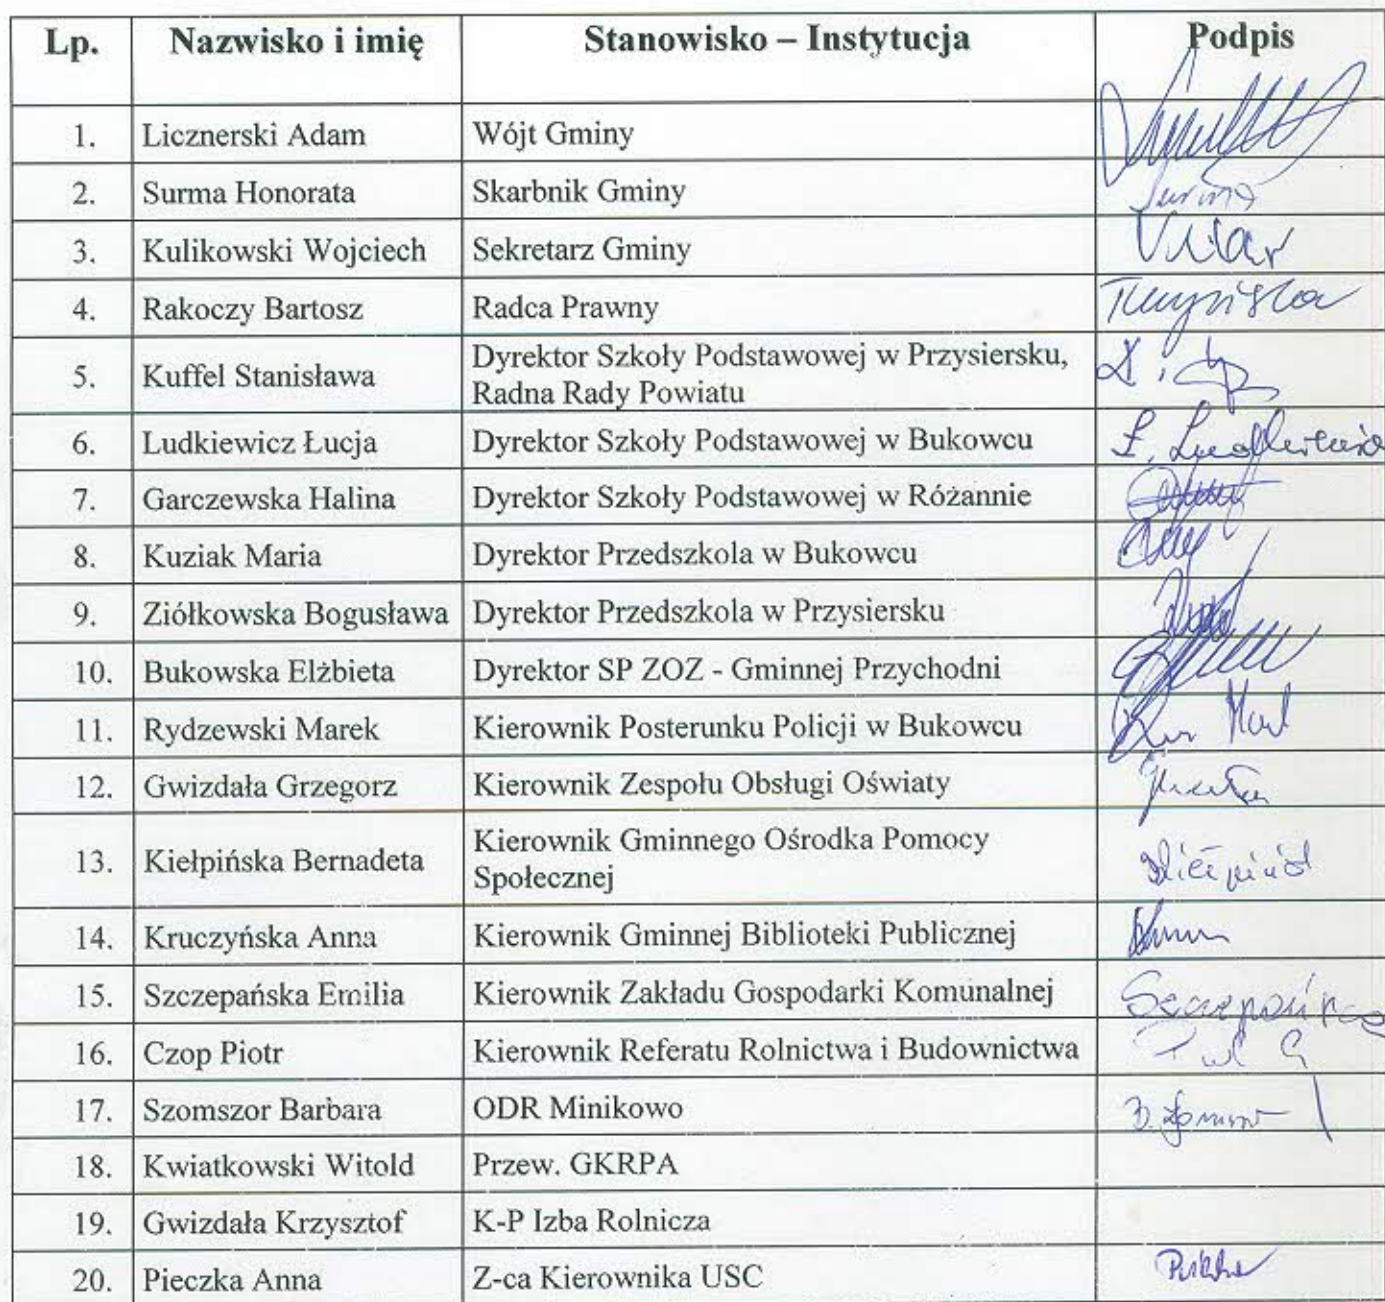 Lp. Nazwisko i imię Stanowisko – Instytucja Podpis
1. Licznerski Adam Wójt Gminy
2. Surma Honorata Skarbnik Gminy Surma
3. Kulikowski Wojciech Sekretarz Gminy
4. Rakoczy Bartosz Radca Prawny
5. Kuffel Stanisława Dyrektor Szkoły Podstawowej w Przysiersku,
Radna Rady Powiatu
6. Ludkiewicz Łucja Dyrektor Szkoły Podstawowej w Bukowcu
7. Garczewska Halina Dyrektor Szkoły Podstawowej w Różannie
8. Kuziak Maria Dyrektor Przedszkola w Bukowcu
9. Ziółkowska Bogusława Dyrektor Przedszkola w Przysiersku
10. Bukowska Elżbieta Dyrektor SP ZOZ - Gminnej Przychodni
11. Rydzewski Marek Kierownik Posterunku Policji w Bukowcu
12. Gwizdała Grzegorz Kierownik Zespołu Obsługi Oświaty
13. Kiełpińska Bernadeta Kierownik Gminnego Ośrodka Pomocy
Społecznej
14. Kruczyńska Anna Kierownik Gminnej Biblioteki Publicznej
15. Szczepańska Emilia Kierownik Zakładu Gospodarki Komunalnej
16. Czop Piotr Kierownik Referatu Rolnictwa i Budownictwa
17. Szomszor Barbara ODR Minikowo
18. Kwiatkowski Witold Przew. GKRPA
19. Gwizdała Krzysztof K-P Izba Rolnicza
20. Pieczka Anna Z-ca Kierownika USC